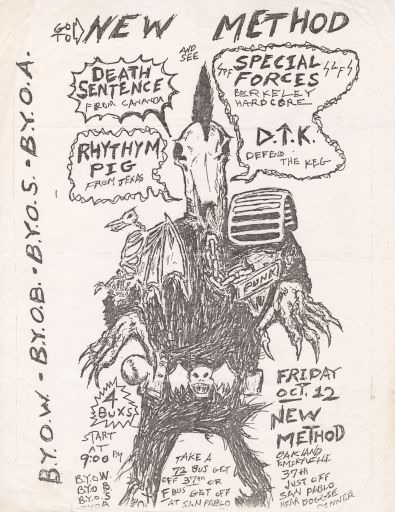 GO TO NEW METHOD
AND
SEE
DEATH
SENTENCE
FROM CANANDA
SPECIAL
FORCES
BERKELEY
HARDCORE
RHYTHYM
PIG
FROM TEXAS
D.T.K.
DEFEND
THE KEG
B.Y.O.W. - B.Y.O.B. - B.Y.O.S. - B.Y.O.A.
PUNK
4
BUXS
START
AT
9:00 PM
B.Y.O.W.
B.Y.O.B.
B.Y.O.S
B.Y.O.A
TAKE A
72 BUS GET
OFF 37TH OR
F BUS GET OFF
AT SAN PABLO
FRIDAY
OCT. 12
NEW
METHOD
OAKLAND
EMERYVILLE
37TH
JUST OFF
SAN PABLO
NEAR DOGGIE
DINNER